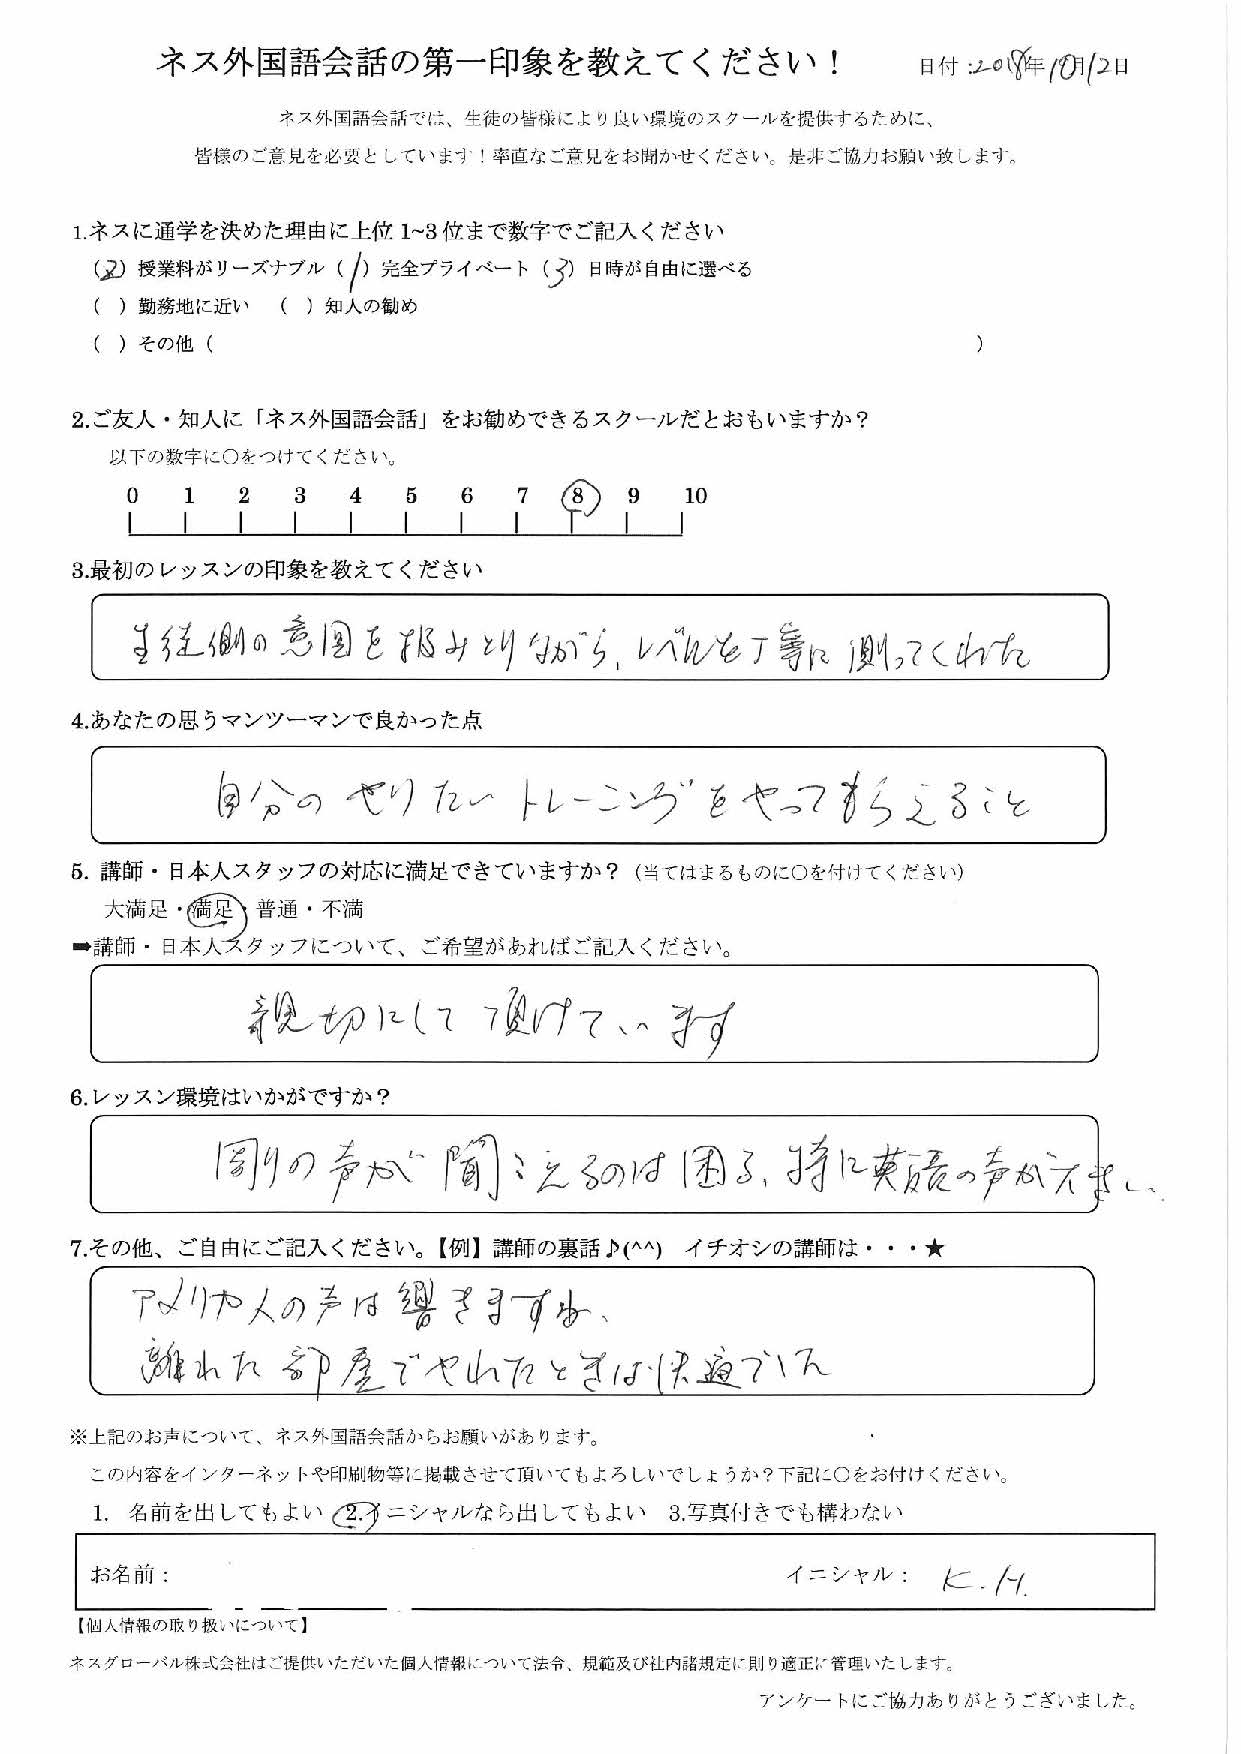 ネス外国語会話の第一印象を教えてください！
日付：2018年10月12日
ネス外国語会話では、生徒の皆様により良い環境のスクールを提供するために、
皆様のご意見を必要としています！率直なご意見をお聞かせください。是非ご協力お願い致します。
1.ネスに通学を決めた理由に上位1~3位まで数字でご記入ください
（2）授業料がリーズナブル（1）完全プライベート（3）日時が自由に選べる
（ ）勤務地に近い （ ）知人の勧め
（ ）その他（ ）
2.ご友人・知人に「ネス外国語会話」をお勧めできるスクールだとおもいますか？
以下の数字に〇をつけてください。
0 1 2 3 4 5 6 7 8 9 10
3.最初のレッスンの印象を教えてください
生徒側の意図を汲みとりながら、レベルを丁寧に測ってくれた
4.あなたの思うマンツーマンで良かった点
自分のやりたいトレーニングをやってもらえること
5. 講師・日本人スタッフの対応に満足できていますか？（当てはまるものに〇を付けてください）
大満足・満足・普通・不満
➡講師・日本人スタッフについて、ご希望があればご記入ください。
親切にして頂けています
6.レッスン環境はいかがですか？
周りの声が聞こえるのは困る、特に英語の声が大きい、
7.その他、ご自由にご記入ください。【例】講師の裏話♪(^^) イチオシの講師は・・・★
アメリカ人の声は響きますね、
離れた部屋でやれたときは快適でした
※上記のお声について、ネス外国語会話からお願いがあります。
この内容をインターネットや印刷物等に掲載させて頂いてもよろしいでしょうか？下記に〇をお付けください。
1. 名前を出してもよい 2.イニシャルなら出してもよい 3.写真付きでも構わない
お名前： イニシャル： K.H.
【個人情報の取り扱いについて】
ネスグローバル株式会社はご提供いただいた個人情報について法令、規範及び社内諸規定に則り適正に管理いたします。
アンケートにご協力ありがとうございました。